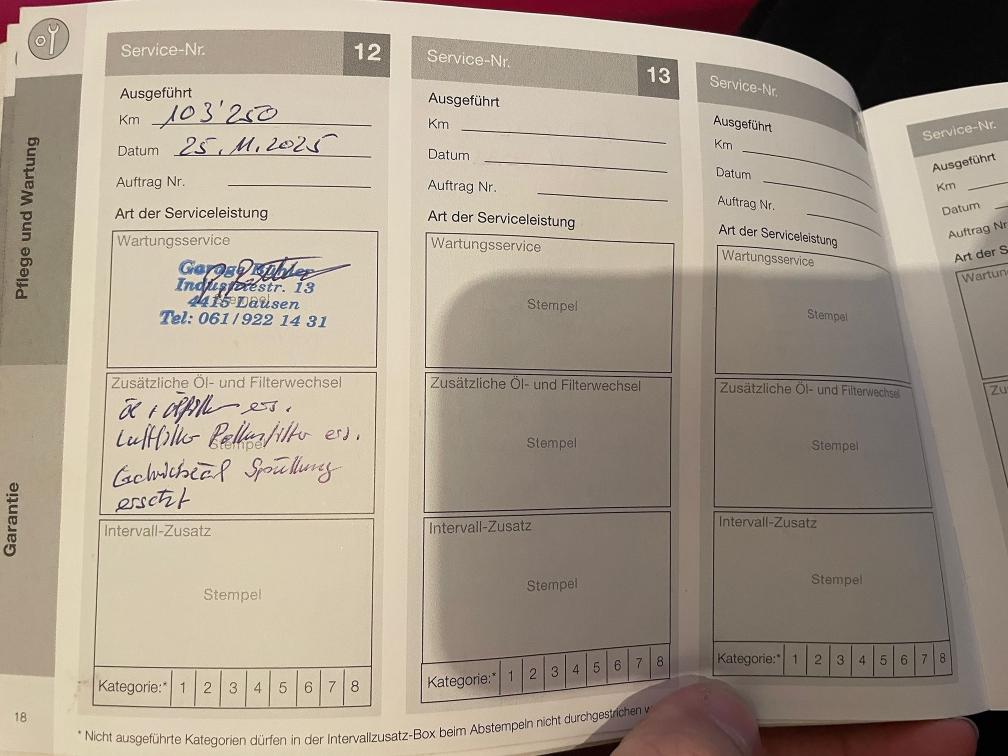 Pflege und Wartung
Garantie
Service-Nr. 12
Ausgeführt
Km 103'250
Datum 25.11.2025
Auftrag Nr.
Art der Serviceleistung
Wartungsservice
Stempel
Garage Bühler
Industriestr. 13
4415 Lausen
Tel: 061/922 14 31
Zusätzliche Öl- und Filterwechsel
Stempel
Öl + Ölfilter ers.
Luftfilter Pollenfilter ers.
Spüllung
ersetzt
Intervall-Zusatz
Stempel
Kategorie:* 1 2 3 4 5 6 7 8
18
Service-Nr. 13
Ausgeführt
Km
Datum
Auftrag Nr.
Art der Serviceleistung
Wartungsservice
Stempel
Zusätzliche Öl- und Filterwechsel
Stempel
Intervall-Zusatz
Stempel
Kategorie:* 1 2 3 4 5 6 7 8
* Nicht ausgeführte Kategorien dürfen in der Intervallzusatz-Box beim Abstempeln nicht durchgestrichen
Service-Nr.
Ausgeführt
Km
Datum
Auftrag Nr.
Art der Serviceleistung
Wartungsservice
Stempel
Zusätzliche Öl- und Filterwechsel
Stempel
Intervall-Zusatz
Stempel
Kategorie:* 1 2 3 4 5 6 7 8
Service-Nr.
Ausgeführt
Km
Datum
Auftrag Nr
Art der S
Wartun
Zu